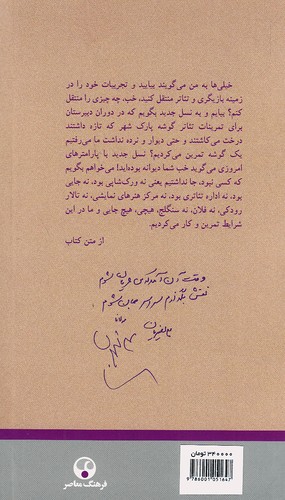 خیلی‌ها به من می‌گویند بیایید و تجربیات خود را در
زمینه بازیگری و تئاتر منتقل کنید، خب، چه چیزی را منتقل
کنم؟ بیایم و به نسل جدید بگویم که در دوران دبیرستان
برای تمرینات تئاتر گوشه پارک شهر که تازه داشتند
درخت می‌کاشتند و حتی دیوار و نرده نداشت ما می‌رفتیم
یک گوشه تمرین می‌کردیم؟ نسل جدید با پارامترهای
امروزی می‌گوید خب شما دیوانه بوده‌اید! می‌خواهم بگویم
که کسی نبود، جا نداشتیم یعنی نه ورک‌شاپی بود، نه جایی
بود، نه اداره تئاتری بود، نه مرکز هنرهای نمایشی، نه تالار
رودکی، نه فلان، نه سنگلج، هیچی، هیچ جایی و ما در این
شرایط تمرین و کار می‌کردیم.
از متن کتاب
وقت آن آمد که من عریان شوم
نقش بگذارم سراسر جان شوم
فرهنگ معاصر
۳۴۰۰۰۰ تومان
9 786001 051647